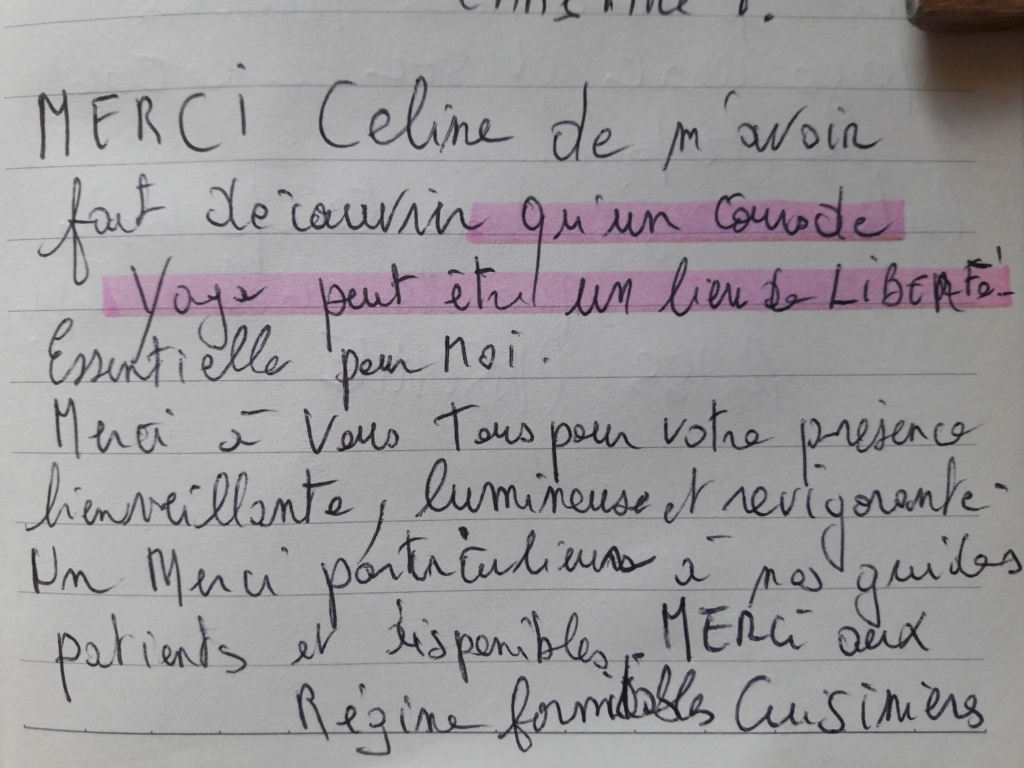 MERCI Celine de m'avoir
fait découvrir qu'un cours de
Voga peut être un lieu de LiBERTé!
Essentielle pour Moi.
Merci à Vous Tous pour votre présence
bienveillante, lumineuse et revigorante.
Un Merci particuliers à nos guides
patients et disponibles. MERCi aux
Régine formidables Cuisiniers